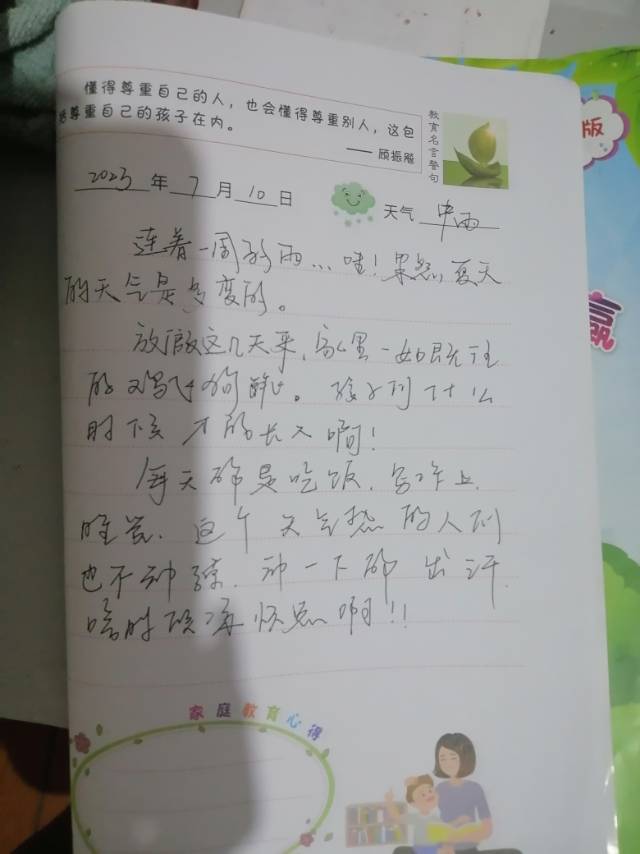 懂得尊重自己的人，也会懂得尊重别人，这包
括尊重自己的孩子在内。
—— 顾振飚
教育名言警句
2023 年 7 月 10 日
天气 中雨
连着一周的雨…哇！果然，夏天
的天气是多变的。
放假这几天来，家里一如既往
的鸡飞狗跳。孩子到什么
时候才能长大啊！
每天都是吃饭、写作业、
睡觉、这个天气热的人到
也不动弹，动一下都出汗，
啥时候凉快点啊！！
家庭教育心得
版
赢